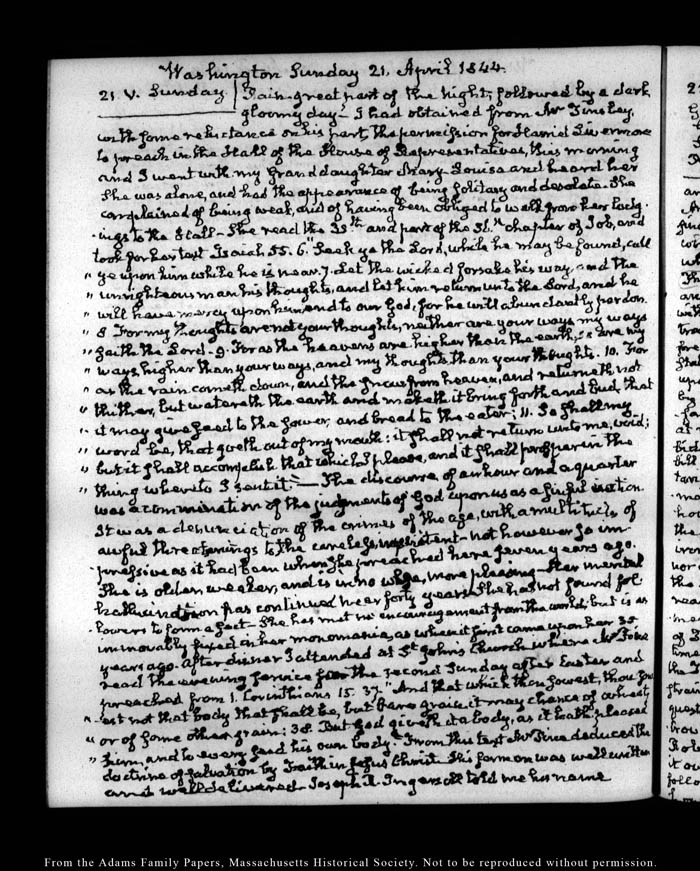 Washington Sunday 21. April 1844.
21. V. Sunday. Rain great part of the night, followed by a dark,
gloomy day. I had obtained from Mr Tinsley,
with some reluctance on his part the permission for Harriet Livermore
to preach in the Hall of the House of Representatives, this morning
and I went with my Granddaughter Mary Louisa and heard her
She was alone, and had the appearance of being solitary and desolate. She
complained of being weak, and of having been obliged to walk from her lodg-
ings to the Hall – She read the 35th and part of the 36.th chapter of Job, and
took for her text Isaiah 55. 6. "Seek ye the Lord, while he may be found, call
" ye upon him while he is near. 7. Let the wicked forsake his way, and the
" unrighteous man his thoughts, and let him return unto the Lord, and he
" will have mercy upon him, and to our God, for he will abundantly pardon.
" 8 For my thoughts are not your thoughts, neither are your ways my ways
" saith the Lord – 9. For as the heavens are higher than the earth, so are my
" ways higher than your ways, and my thoughts than your thoughts. 10. For
" as the rain cometh down, and the snow from heaven, and returneth not
" thither, but watereth the earth and maketh it bring forth and bud, that
" it may give seed to the sower, and bread to the eater; 11. So shall my
" word be, that goeth out of my mouth: it shall not return unto me, void;
" but it shall accomplish that which I please, and it shall prosper in the
" thing whereto I sent it: – The discourse of an hour and a quarter
was a commination of the judgments of God upon us as a sinful nation.
It was a denunciation of the crimes of the age, with a multitude of
awful threatenings to the careless impenitent – not however so im-
pressive as it had been when she preached here seven years ago.
She is older, weaker, and is in no whit, more pleasing – Her mental
hallucination has continued near forty years She has not found fol-
lowers to form a sect – She has met no encouragement from the world; but is as
immovably fixed in her monomania, as when it first came upon her 35
years ago. After dinner I attended at St Johns Church where Mr
read the evening service for the second Sunday after Easter and
preached from 1. Corinthians 15. 37. "And that which thou sowest, thou sow-
" est not that body that shall be, but bare grain, it may chance of wheat,
" or of some other grain: 38. But God giveth it a body, as it hath pleased
" him, and to every seed his own body." From this text Mr deduced the
doctrine of salvation by Faith in Jesus Christ. His sermon was well written
and well delivered. Joseph R. Ingersoll told me his name
From the Adams Family Papers, Massachusetts Historical Society. Not to be reproduced without permission.